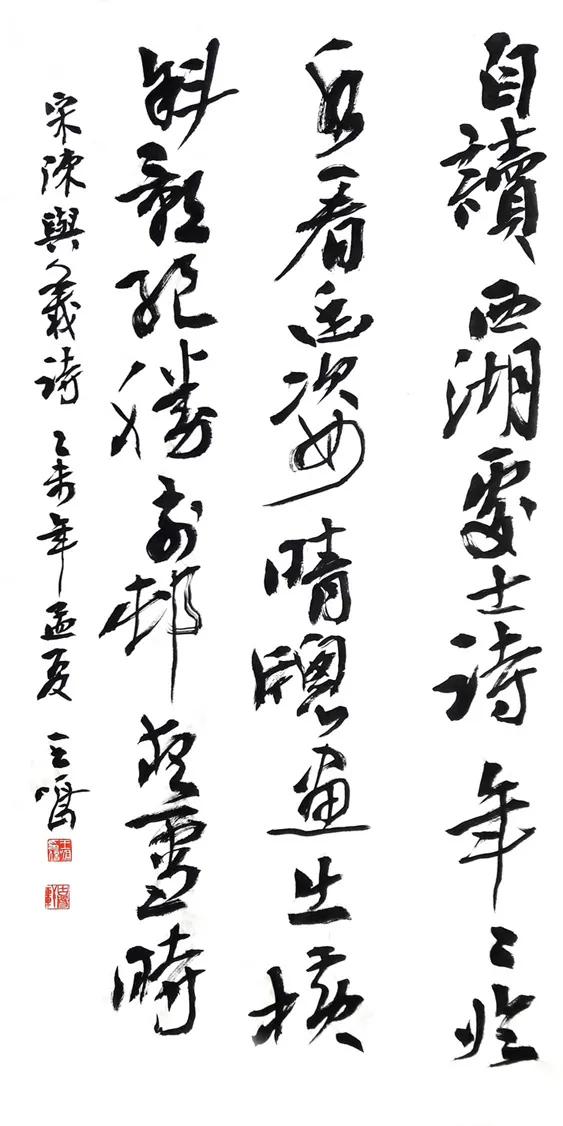 自讀西湖處士詩年〻臨
水看幽姿晴牕畫出橫
斜影絕勝前邨夜雪時
宋陳與義詩乙未年孟夏王